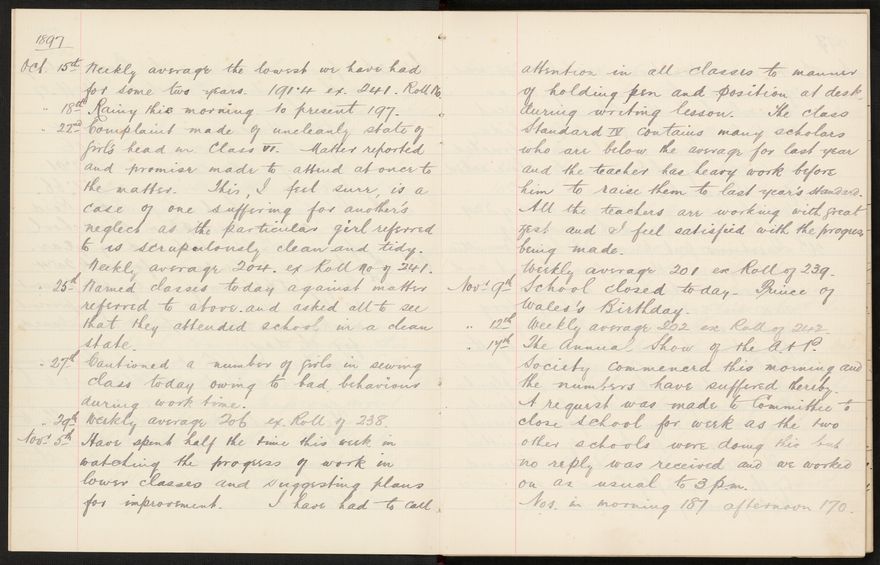 1897
Oct. 15th Weekly average the lowest we have had
for some two years. 191.4 ex. 241. Roll No.
" 18th Rainy this morning to present 197.
" 22nd Complaint made of uncleanly state of
girl's head in Class VI. Matter reported
and promise made to attend at once to
the matter. This, I feel sure, is a
case of one suffering for another's
neglect as the particular girl referred
to is scrupulously clean and tidy.
Weekly average 204. ex Roll No of 241.
" 25th Warned classes today against matter
referred to above and asked all to see
that they attended school in a clean
state.
" 27th Cautioned a number of girls in sewing
class today owing to bad behaviour
during work time.
" 29th Weekly average 206 ex. Roll of 238.
Nov. 5th Have spent half the time this week in
watching the progress of work in
lower classes and suggesting plans
for improvement. I have had to call
attention in all classes to manner
of holding pen and position at desk
during writing lesson. The class
Standard IV contains many scholars
who are below the average for last year
and the teacher has heavy work before
him to raise them to last year's standard.
All the teachers are working with great
zest and I feel satisfied with the progress
being made.
Weekly average 201 ex Roll of 239.
Nov. 9th School closed today - Prince of
Wales's Birthday.
" 12th Weekly average 202 ex Roll of 242
" 17th The Annual Show of the A & P.
Society commenced this morning and
the numbers have suffered thereby.
A request was made to Committee to
close school for week as the two
other schools were doing this but
no reply was received and we worked
on as usual to 3 p.m.
Nos. in morning 187 afternoon 170.